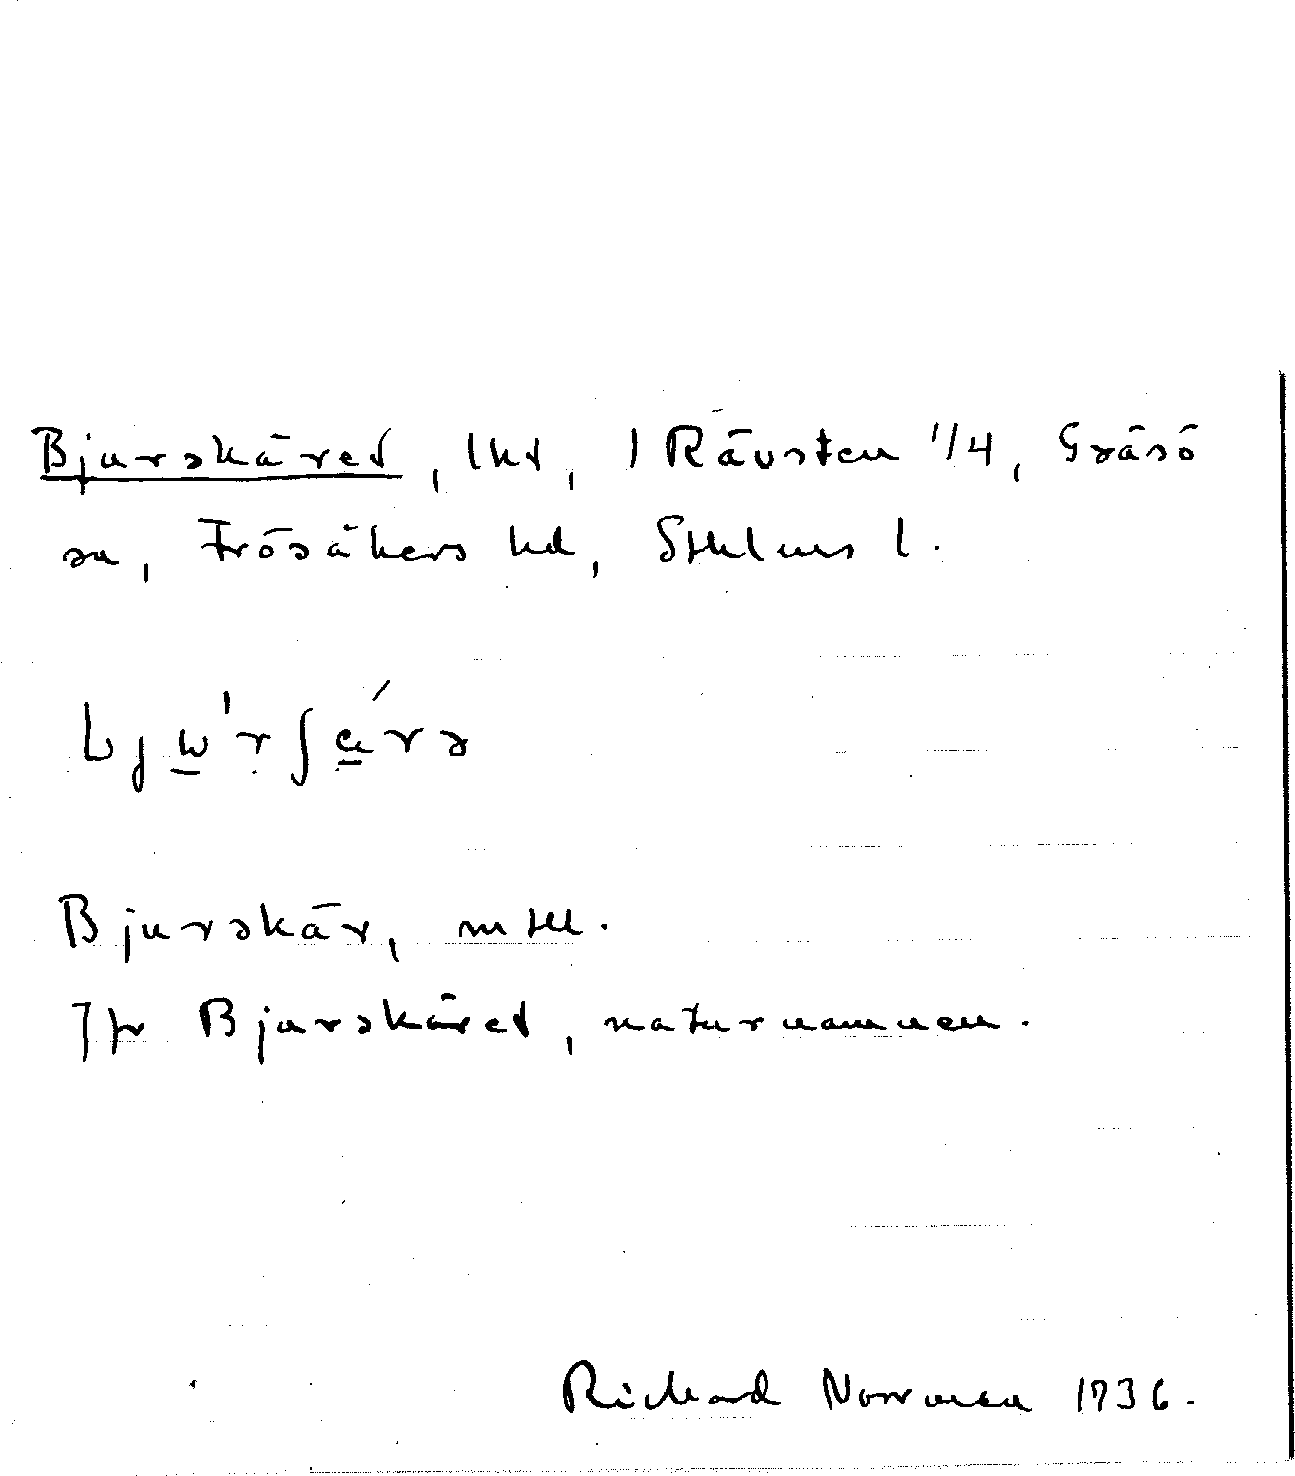 Bjurskäret, lht, 1 Rävsten 1/4, Gräsö
sn, Frösåkers hd, Sthlms l.
Bjurskär, mtkl.
Jfr Bjurskäret, naturnamnen.
Richard Norrman 1936.